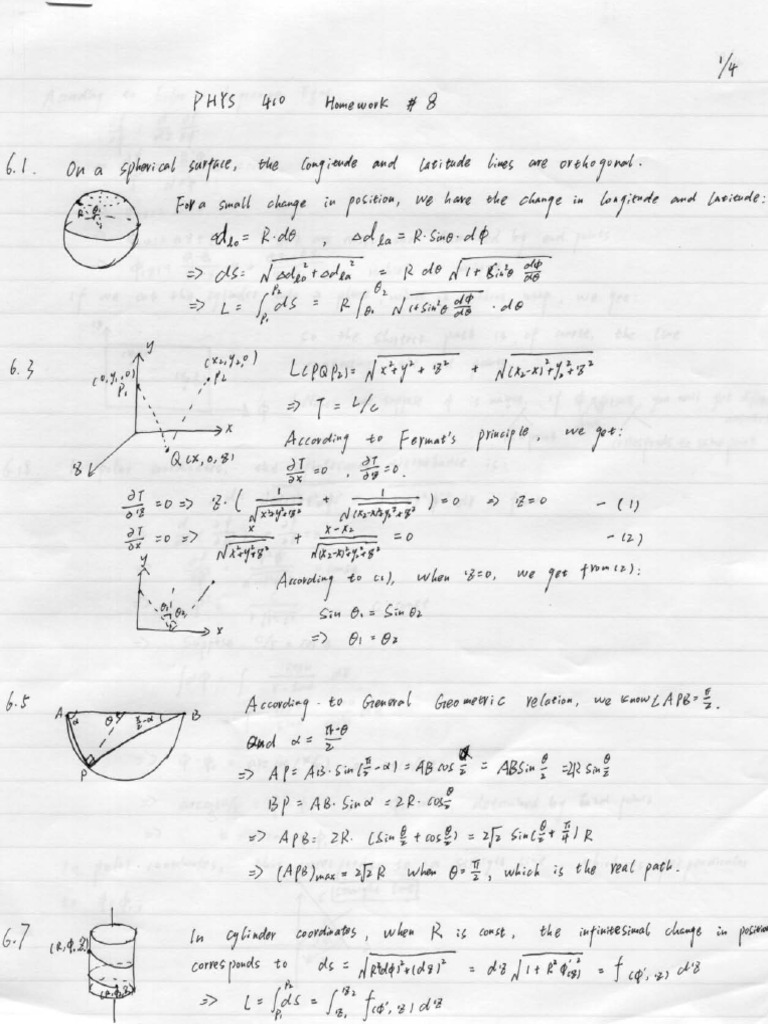 1/4
PHYS 410 Homework # 8
6.1. On a spherical surface, the longitude and latitude lines are orthogonal.
For a small change in position, we have the change in longitude and latitude:
R θ
Δd_lo = R·dθ , Δd_la = R·Sinθ·dϕ
=> dS = √(Δd_lo² + Δd_la²) = R dθ √(1 + Sin²θ dϕ/dθ)
=> L = ∫_P₁^P₂ dS = R ∫_θ₁^θ₂ √(1+Sin²θ dϕ/dθ) · dθ
6.3
y
(0, y₁, 0) P₁
(x₂, y₂, 0) P₂
x
z
Q(x, 0, z)
L(PQP₂) = √(x²+y²+z²) + √((x₂-x)²+y₂²+z²)
=> T = L/c
According to Fermat's principle, we get:
∂T/∂x = 0 , ∂T/∂z = 0.
∂T/∂z = 0 => z·( 1/√(x²+y²+z²) + 1/√((x₂-x)²+y₂²+z²) ) = 0 => z = 0 — (1)
∂T/∂x = 0 => x/√(x²+y²+z²) + x-x₂/√((x₂-x)²+y₂²+z²) = 0 — (2)
y
θ₁ θ₂
x
According to (1), when z=0, we get from (2):
Sin θ₁ = Sin θ₂
=> θ₁ = θ₂
6.5
A α θ π/2-α B
P
According to General Geometric relation, we know ∠APB = π/2.
and α = π-θ/2
=> AP = AB·Sin(π/2-α) = AB cos α = AB Sin θ/2 = 2R Sin θ/2
BP = AB·Sin α = 2R·cos θ/2
=> APB = 2R·(Sin θ/2 + cos θ/2) = 2√2 Sin(θ/2 + π/4) R
=> (APB)max = 2√2 R when θ = π/2, which is the real path.
6.7
(R, ϕ, z)
In cylinder coordinates, when R is const, the infinitesimal change in position
corresponds to ds = √(R²dϕ)²+(dz)² = dz √(1 + R² ϕ'²(z)) = f(ϕ', z) dz
=> L = ∫_P₁^P₂ dS = ∫_z₁^z₂ f(ϕ', z) dz